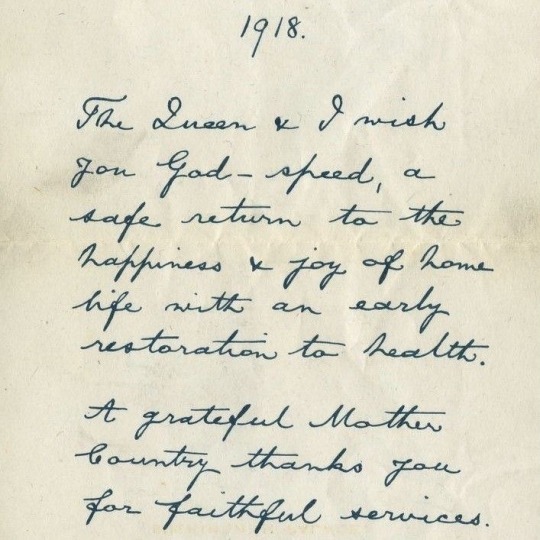 1918.
The Queen & I wish
you God-speed, a
safe return to the
happiness & joy of home
life with an early
restoration to health.
A grateful Mother
Country thanks you
for faithful services.